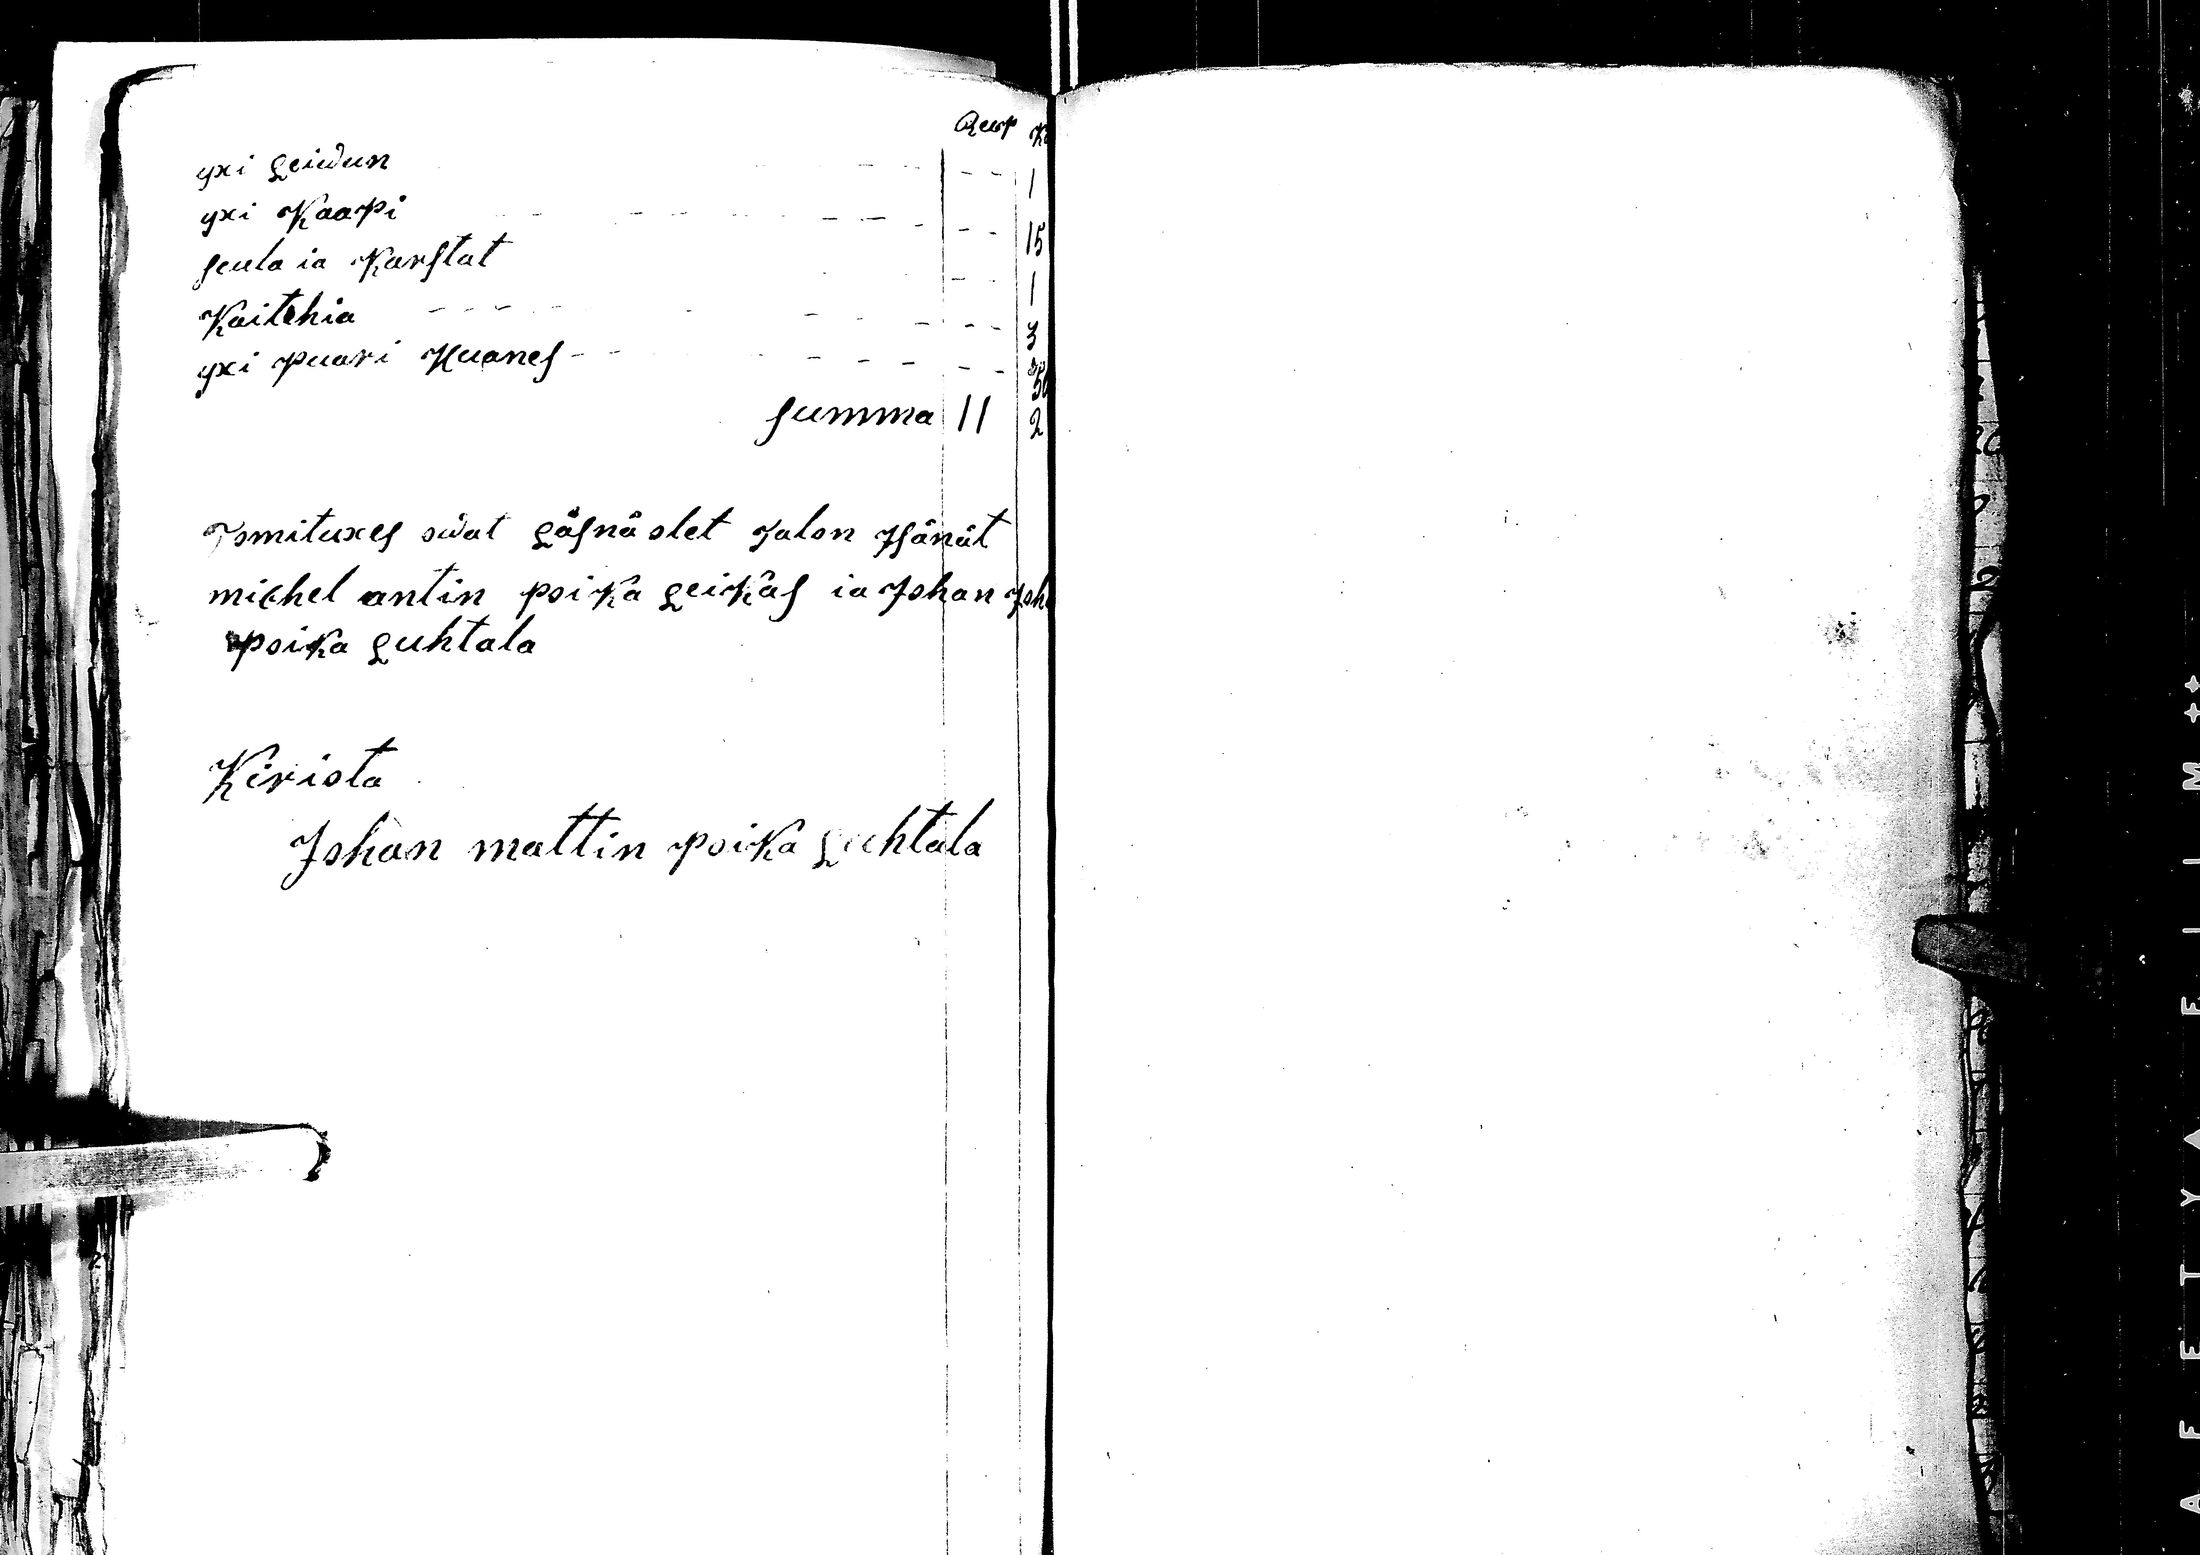 Rup Ko
yxi Leiwun - - - - 1
yxi Kaapi - - - - 15
seula ia Karstat - - 1
Kaitehia - - - - 3
yxi puari Huones - - - - 50
summa 11 2
Toimituxes owat Läsnä olet Talon Isänät
michel antin poika Leikas ia Johan Joh
poika Luhtala
Kirioita
Johan mattin poika Luhtala